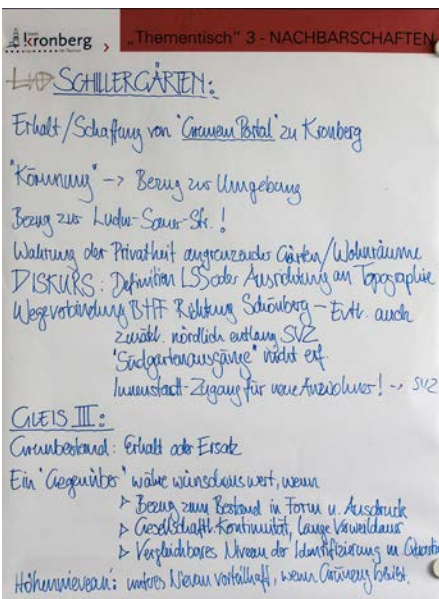 Stadt
kronberg
im Taunus
„Thementisch" 3 - NACHBARSCHAFTEN
SCHILLERGÄRTEN:
Erhalt/Schaffung von "Grünem Portal" zu Kronberg
"Körnung" -> Bezug zur Umgebung
Bezug zur Ludw.-Sauer-Str.!
Wahrung der Privatheit angrenzender Gärten/Wohnräume
DISKURS: Definition LSS oder Ausrichtung an Topographie
Wegeverbindung BHF Richtung Schönberg – Evtl. auch
zusätzl. nördlich entlang SVZ
"Südgartenausgänge" nicht erf.
Innenstadt-Zugang für neue Anwohner! -> SVZ
GLEIS III:
Grünbestand: Erhalt oder Ersatz
Ein "Gegenüber" wäre wünschenswert, wenn
> Bezug zum Bestand in Form u. Ausdruck
> Gesellschaftl. Kontinuität, lange Verweildauer
> Vergleichbares Niveau der Identifizierung m. Quartier
Höhenniveau: unteres Niveau vorteilhaft, wenn Grünzug bleibt.